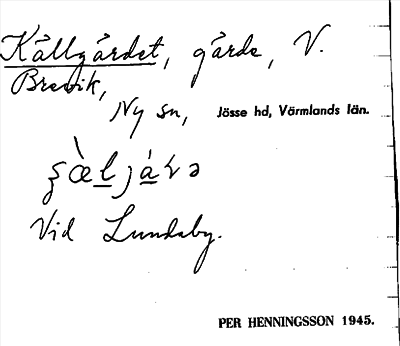 Källgärdet, gärde, V.
Brevik,
Ny sn, Jösse hd, Värmlands län.
Vid Lundsby.
PER HENNINGSSON 1945.